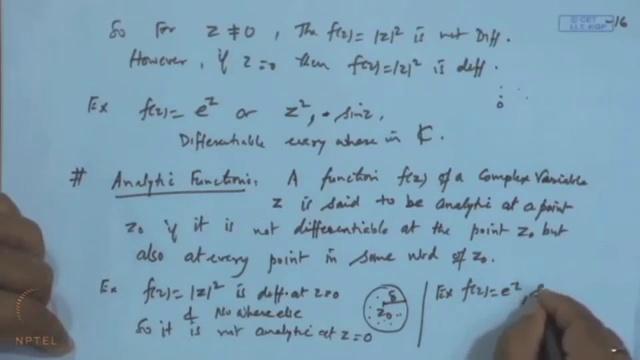 So For z ≠ 0, The f(z) = |z|² is not Diff.
However, if z=0 then f(z)=|z|² is diff.
Ex f(z) = e^z or z², sinz,
Differentiable every where in ₵.
# Analytic Function: A function f(z) of a Complex Variable
z is said to be analytic at a point
z₀ if it is not differentiable at the point z₀ but
also at every point in some nbd of z₀.
Ex f(z) = |z|² is diff. at z=0
& No where else
So it is not analytic at z=0
δ
z₀
Ex f(z) = e^z,
© CET
I.I.T. KGP
-16
0
NPTEL